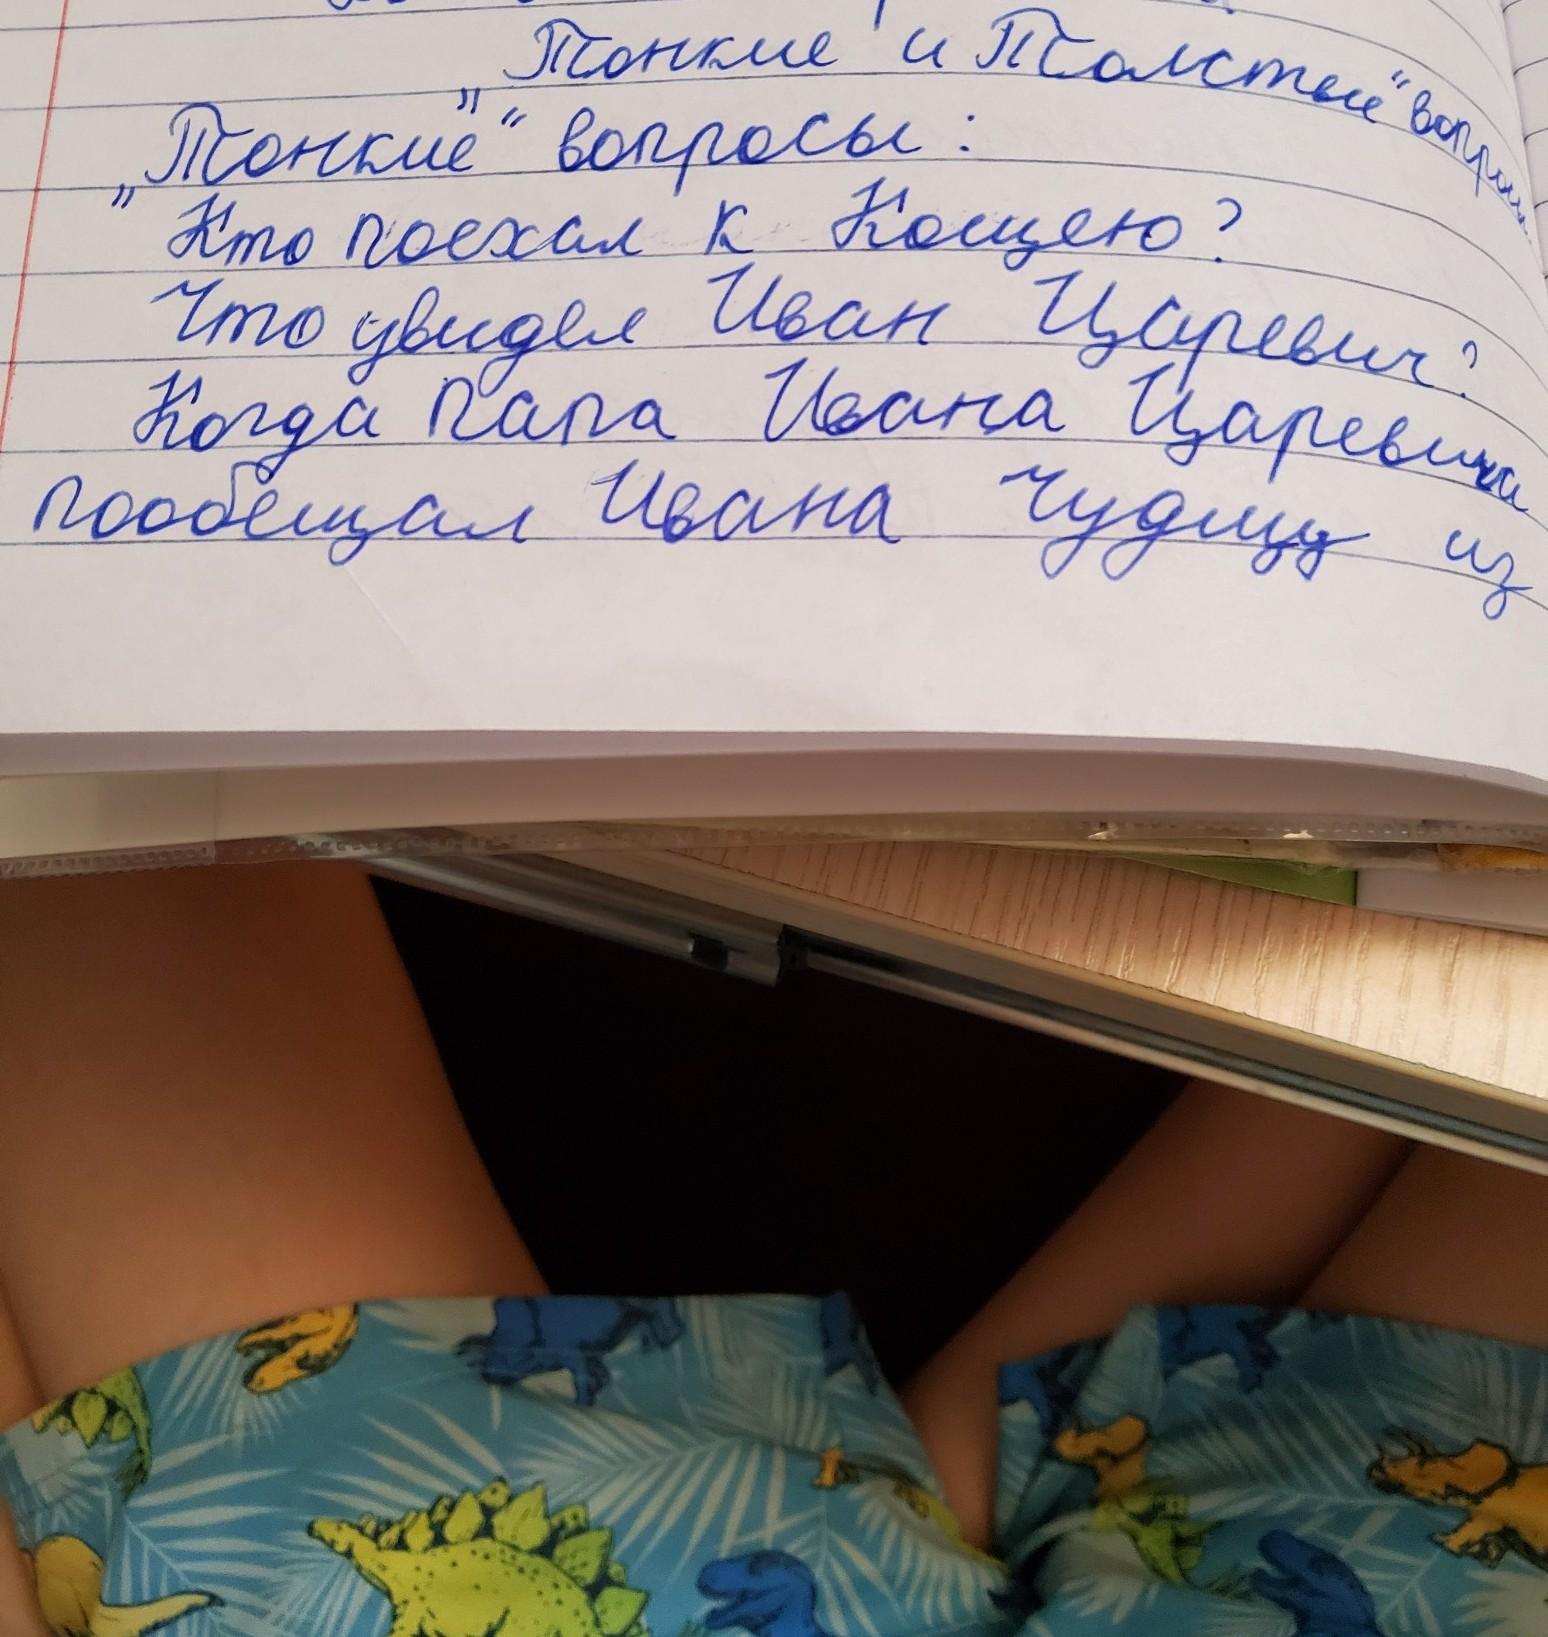 „Тонкие" и „Толстые" вопросы
„Тонкие" вопросы:
Кто поехал к Кощею?
Что увидел Иван Царевич?
Когда папа Ивана Царевича
пообещал Ивана Чудищу из